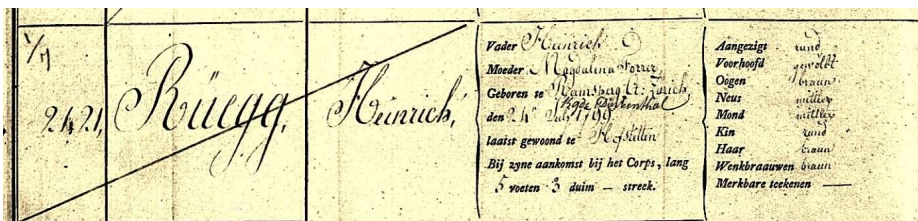 V/7
2421, Rüegg, Heinrich,
Vader Heinrich
Moeder Magdalina Forrer
Geboren te Ramsberg Ct: Zürich
den 24n July 1799.
laatst gewoond te Hofstetten
Bij zyne aankomst bij het Corps, lang
5 voeten 3 duim — streek.
Aangezigt rund
Voorhoofd gewölbt
Oogen braun
Neus mittler
Mond mittler
Kin rund
Haar braun
Wenkbraauwen braun
Merkbare teekenen —